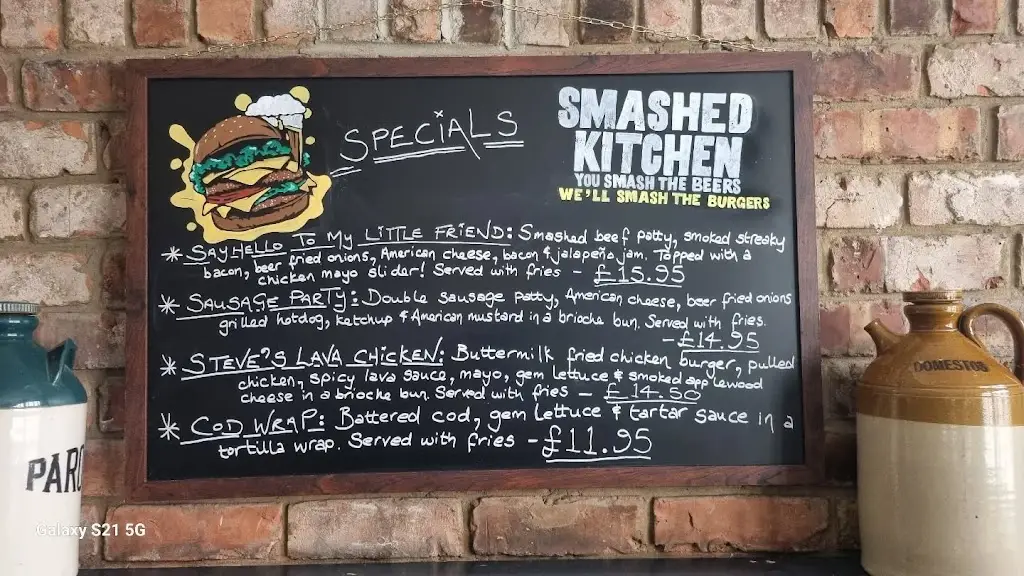 SPECIALS
SMASHED
KITCHEN
YOU SMASH THE BEERS
WE'LL SMASH THE BURGERS
* SAY HELLO TO MY LITTLE FRIEND: Smashed beef patty, smoked streaky
bacon, beer fried onions, American cheese, bacon & jalapeño jam. Topped with a
chicken mayo slider! Served with fries - £15.95
* SAUSAGE PARTY: Double sausage patty, American cheese, beer fried onions
grilled hotdog, ketchup & American mustard in a brioche bun. Served with fries.
- £14.95
* STEVE'S LAVA CHICKEN: Buttermilk fried chicken burger, pulled
chicken, spicy lava sauce, mayo, gem lettuce & smoked applewood
cheese in a brioche bun. Served with fries - £14.50
* COD WRAP: Battered cod, gem lettuce & tartar sauce in a
tortilla wrap. Served with fries - £11.95
DOMESTOS
Galaxy S21 5G